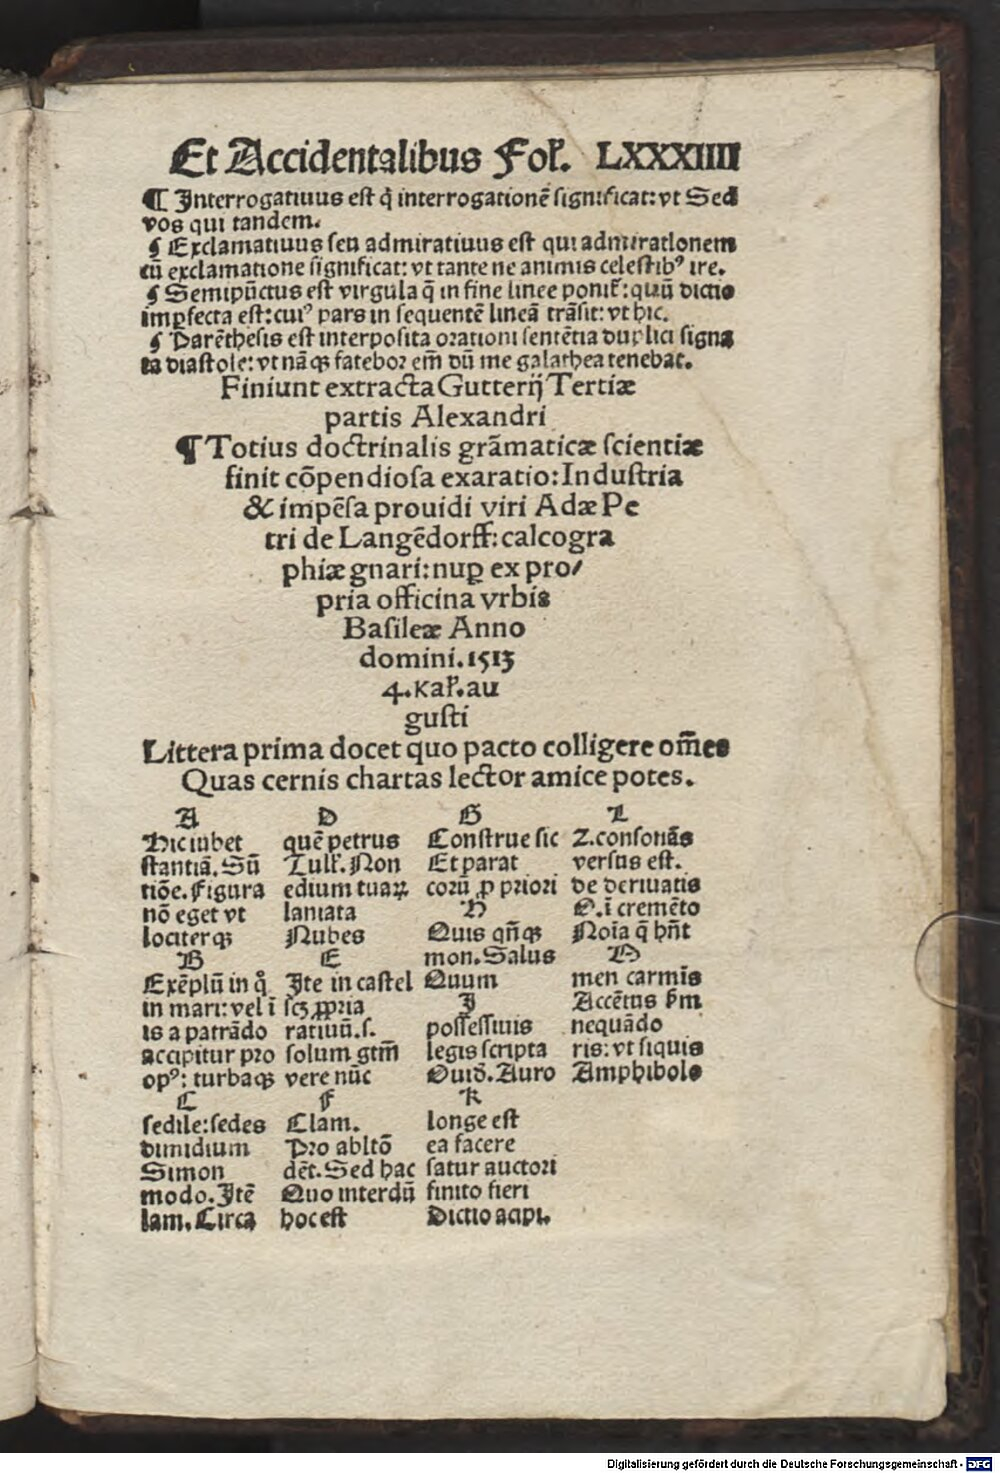 Et Accidentalibus Fol. LXXXIIII
¶ Interrogatiuus est q̄ interrogationē significat: vt Sed
vos qui tandem.
¶ Exclamatiuus seu admiratiuus est qui admirationem
cū exclamatione significat: vt tante ne animis celestibꝰ ire.
¶ Semipūctus est virgula q̄ in fine linee ponit᷑: quū dictio
imꝑfecta est: cuiꝰ pars in sequentē lineā trāsit: vt hic.
¶ Parēthesis est interposita orationi sentētia duplici signa
ta diastole: vt nāqꝫ fatebor em̄ dū me galathea tenebat.
Finiunt extracta Gutterij Tertiæ
partis Alexandri
¶ Totius doctrinalis grāmaticæ scientiæ
finit cōpendiosa exaratio: Industria
& impēsa prouidi viri Adæ Pe
tri de Langēdorff: calcogra
phiæ gnari: nuꝑ ex pro/
pria officina vrbis
Basileæ Anno
domini. 1513
4. Kal̓. au
gusti
Littera prima docet quo pacto colligere om̄es
Quas cernis chartas lector amice potes.
A
Hic iubet
stantiā. Sū
tiōe. Figura
nō eget vt
lociterqꝫ
B
Exēplū in q̊
in mari: vel ī
is a patrādo
accipitur pro
opꝰ: turbaqꝫ
C
sedile: sedes
dimidium
Simon
modo. Itē
lam. Circa
D
quē petrus
Tull̓. Non
edium tuaꝝ
laniata
Nubes
E
Ite in castel
scꝫ ꝓpria
ratiuū. s.
solum gtm̄
vere nūc
F
Clam.
Pro abltō
dēt. Sed hac
Quo interdū
hoc est
G
Construe sic
Et parat
corū ꝓ priori
H
Quis qn̄qꝫ
mon. Salus
Quum
I
possessiuis
legis scripta
Ouid. Auro
K
longe est
ea facere
satur auctori
finito fieri
Dictio acipi.
L
Z. consonās
versus est.
de deriuatis
O. ī cremēto
Noīa q̄ hn̄t
M
men carmīs
Accētus b̄m
nequādo
ris: vt siquis
Amphibole
Digitalisierung gefördert durch die Deutsche Forschungsgemeinschaft - DFG